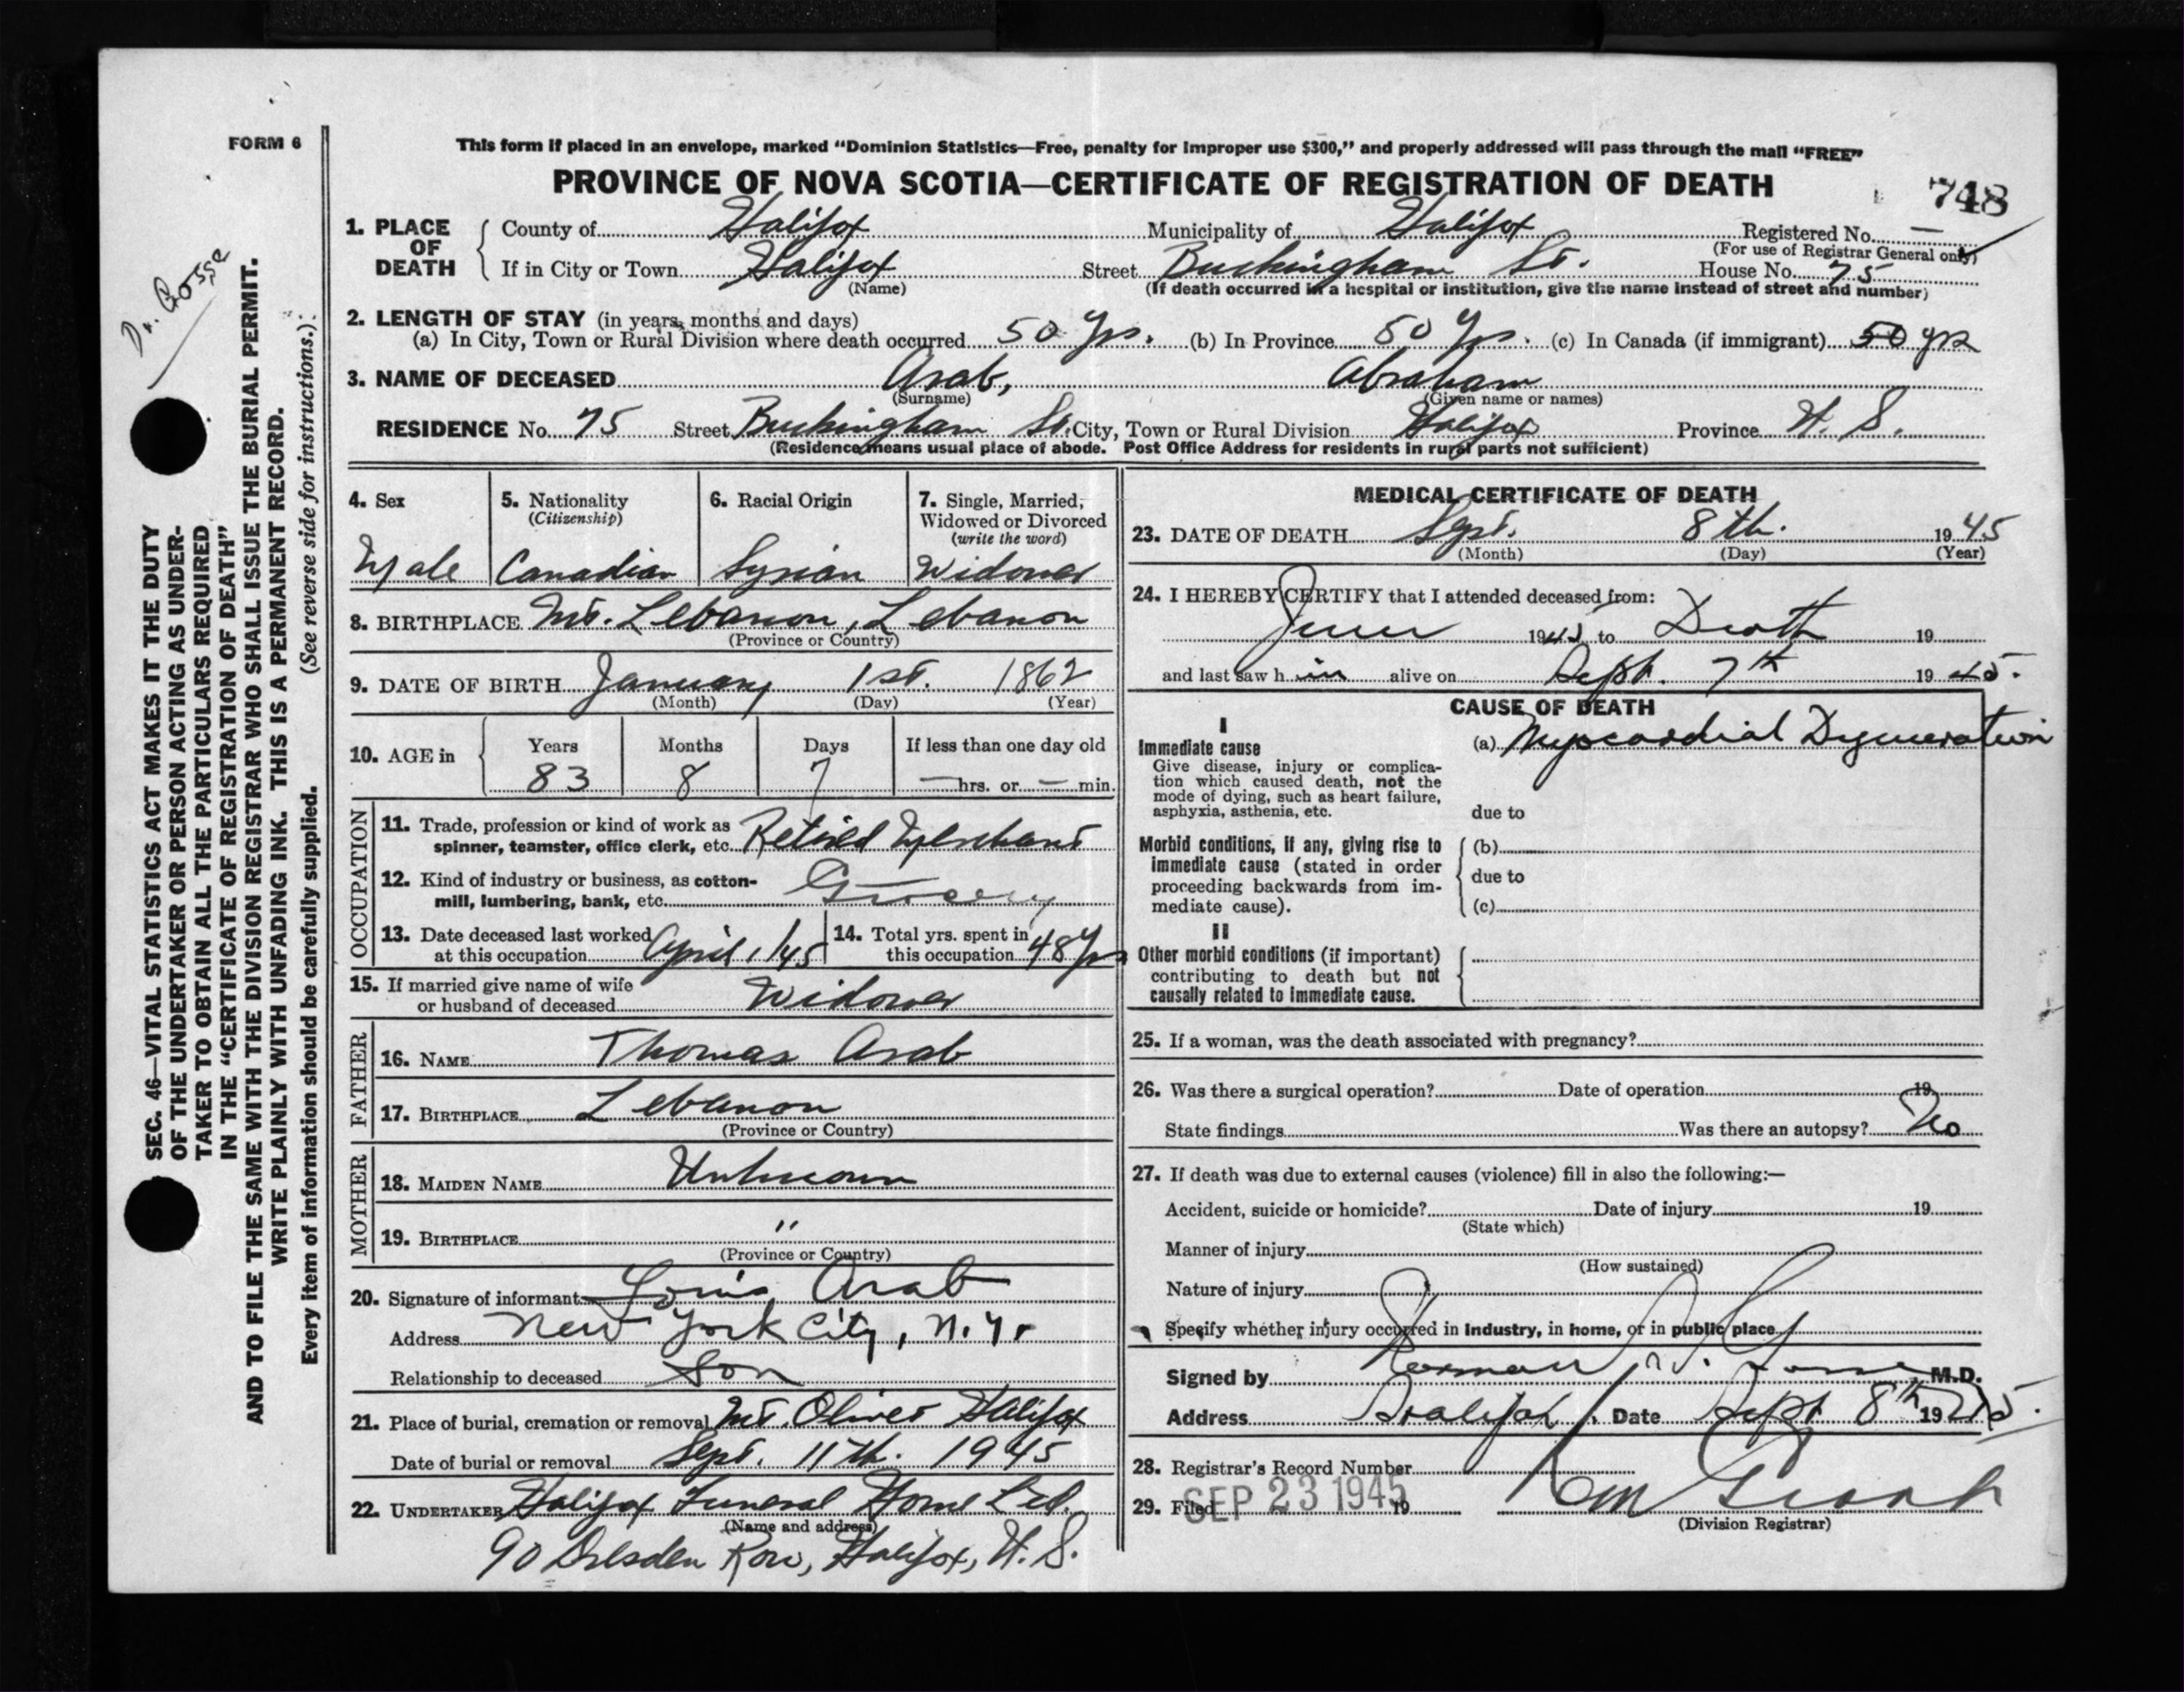 FORM 6
This form if placed in an envelope, marked "Dominion Statistics—Free, penalty for improper use $300," and properly addressed will pass through the mail "FREE"
PROVINCE OF NOVA SCOTIA—CERTIFICATE OF REGISTRATION OF DEATH
748
1. PLACE OF DEATH
County of Halifax Municipality of Halifax Registered No. —
(For use of Registrar General only)
If in City or Town Halifax Street Buckingham St. House No. 75
(Name) (If death occurred in a hospital or institution, give the name instead of street and number)
2. LENGTH OF STAY (in years, months and days)
(a) In City, Town or Rural Division where death occurred 50 Yrs. (b) In Province 50 Yrs. (c) In Canada (if immigrant) 50 yrs
3. NAME OF DECEASED Arab, Abraham
(Surname) (Given name or names)
RESIDENCE No. 75 Street Buckingham St. City, Town or Rural Division Halifax Province N. S.
(Residence means usual place of abode. Post Office Address for residents in rural parts not sufficient)
4. Sex
Male
5. Nationality
(Citizenship)
Canadian
6. Racial Origin
Syrian
7. Single, Married,
Widowed or Divorced
(write the word)
Widower
8. BIRTHPLACE Mt. Lebanon, Lebanon
(Province or Country)
9. DATE OF BIRTH January 1st. 1862
(Month) (Day) (Year)
10. AGE in
Years Months Days If less than one day old
83 8 7 — hrs. or — min.
OCCUPATION
11. Trade, profession or kind of work as
spinner, teamster, office clerk, etc. Retired Merchant
12. Kind of industry or business, as cotton-
mill, lumbering, bank, etc. Grocery
13. Date deceased last worked
at this occupation April, 1/45
14. Total yrs. spent in
this occupation 48 Yrs
15. If married give name of wife
or husband of deceased Widower
FATHER
16. NAME Thomas Arab
17. BIRTHPLACE Lebanon
(Province or Country)
MOTHER
18. MAIDEN NAME Unknown
19. BIRTHPLACE "
(Province or Country)
20. Signature of informant Louis Arab
Address New York City, N. Y.
Relationship to deceased Son
21. Place of burial, cremation or removal Mt. Olivet Halifax
Date of burial or removal Sept. 11th. 1945
22. UNDERTAKER Halifax Funeral Home Ltd.
(Name and address)
90 Dresden Row, Halifax, N. S.
MEDICAL CERTIFICATE OF DEATH
23. DATE OF DEATH Sept. 8th. 1945
(Month) (Day) (Year)
24. I HEREBY CERTIFY that I attended deceased from:
June 1945 to Death 19
and last saw him alive on Sept. 7th 1945.
CAUSE OF DEATH
I
Immediate cause
Give disease, injury or complica-
tion which caused death, not the
mode of dying, such as heart failure,
asphyxia, asthenia, etc.
(a) Myocardial Degeneration
due to
Morbid conditions, if any, giving rise to
immediate cause (stated in order
proceeding backwards from im-
mediate cause).
(b)
due to
(c)
II
Other morbid conditions (if important)
contributing to death but not
causally related to immediate cause.
25. If a woman, was the death associated with pregnancy?
26. Was there a surgical operation? Date of operation 19
State findings Was there an autopsy? No
27. If death was due to external causes (violence) fill in also the following:—
Accident, suicide or homicide? Date of injury 19
(State which)
Manner of injury
(How sustained)
Nature of injury
Specify whether injury occurred in industry, in home, or in public place
Signed by Norman Gosse M.D.
Address Halifax Date Sept 8th 1945.
28. Registrar's Record Number
29. Filed SEP 23 1945 19
(Division Registrar)
Dr. Gosse
SEC. 46—VITAL STATISTICS ACT MAKES IT THE DUTY
OF THE UNDERTAKER OR PERSON ACTING AS UNDER-
TAKER TO OBTAIN ALL THE PARTICULARS REQUIRED
IN THE "CERTIFICATE OF REGISTRATION OF DEATH"
AND TO FILE THE SAME WITH THE DIVISION REGISTRAR WHO SHALL ISSUE THE BURIAL PERMIT.
WRITE PLAINLY WITH UNFADING INK. THIS IS A PERMANENT RECORD.
Every item of information should be carefully supplied. (See reverse side for instructions.):